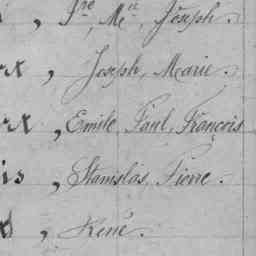 , Jre, Mie, Joseph.
x, Joseph, Marie.
x, Emile, Paul, François
is, Stanislas, Pierre.
, René.